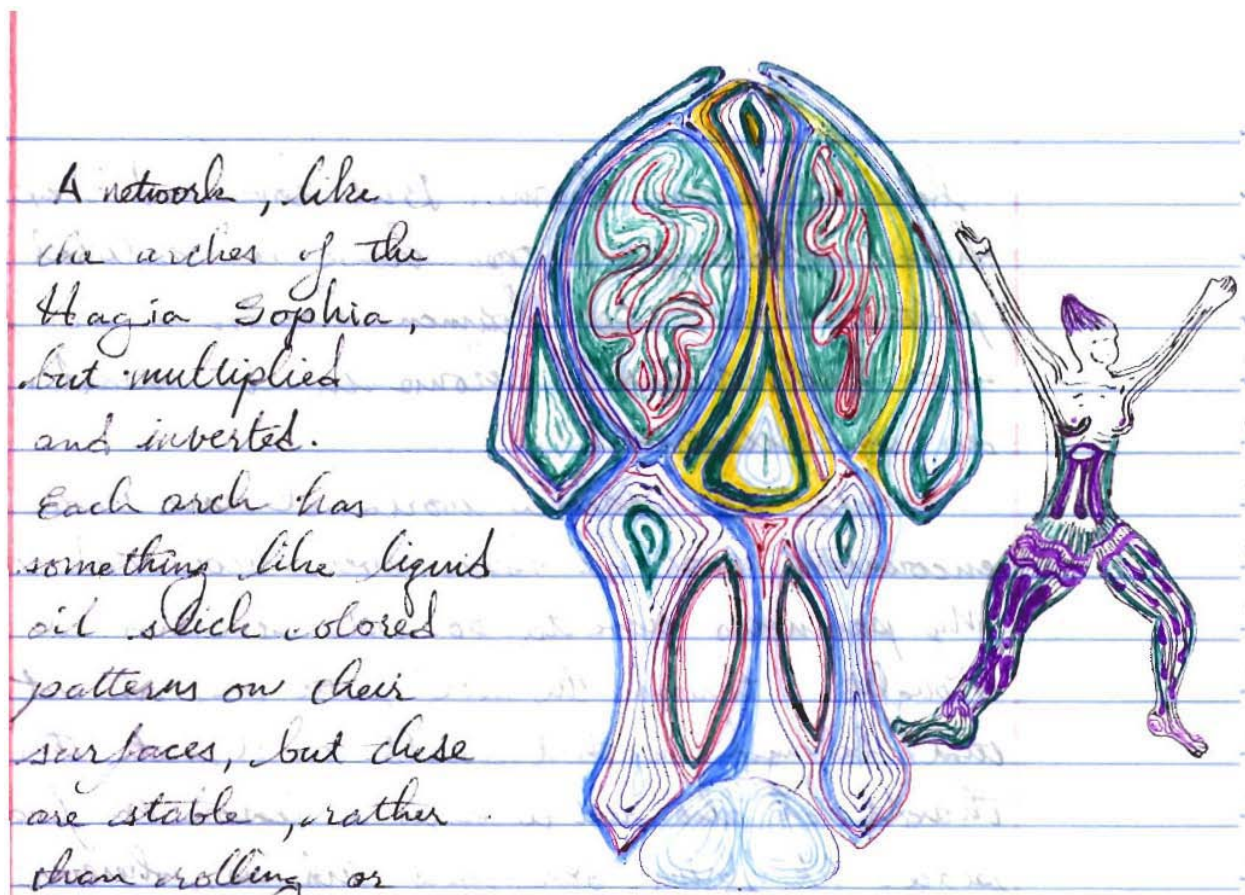 A network, like
the arches of the
Hagia Sophia,
but multiplied
and inverted.
Each arch has
something like liquid
oil slick colored
patterns on their
surfaces, but these
are stable, rather
than rolling or